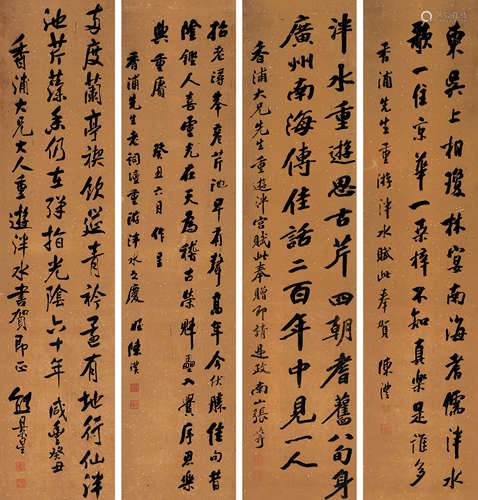 東吳上相瓊林宴南海耆儒泮水
歌一住京華一桑梓不知真樂是誰多
香浦先生重游泮水賦此奉賀 陳澧
泮水重遊思古芹四朝耆舊八旬身
廣州南海傳佳話二百年中見一人
香浦大兄先生重遊泮宮賦此奉贈即請是政南山張
芹池早有聲高年今伏勝佳句昔
陰鏗人喜靈光在天為稽古榮 入黌序思樂
與重賡 癸丑六月作呈
香浦先生老詞壇重游泮水之慶 陳
度蘭亭禊飲筵青衿 有地行仙泮
池芹藻香仍在彈指光陰六十年 咸豐癸丑
香浦大兄大人重遊泮水書賀即正 熊景星